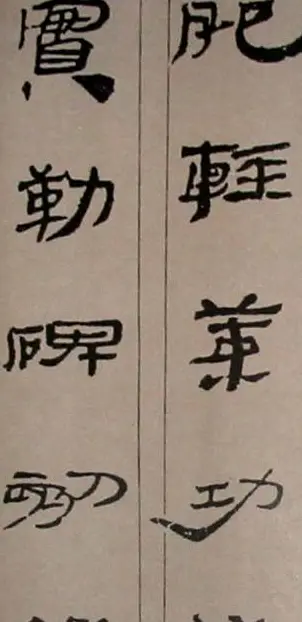 肥輕策功
實勒碑刻